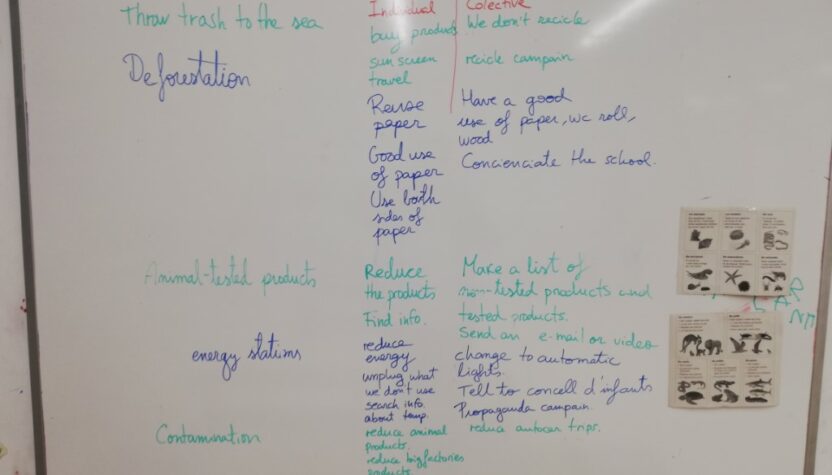 Individual Colective
Throw trash to the sea
buy products We don't recicle
sun screen recicle campain
travel
Deforestation
Reuse Have a good
paper use of paper, wc roll,
wood
Good use Concienciate the school.
of paper
Use both
sides of
paper
Animal-tested products
Reduce Make a list of
the products no-tested products and
Find info. tested products.
Send an e-mail or video
energy stations
reduce
energy change to automatic
lights.
unplug what
we don't use Tell to concell d'infants
search info. Propaganda campain.
about temp.
Contamination
reduce animal reduce autocar trips.
products.
reduce big factories
products